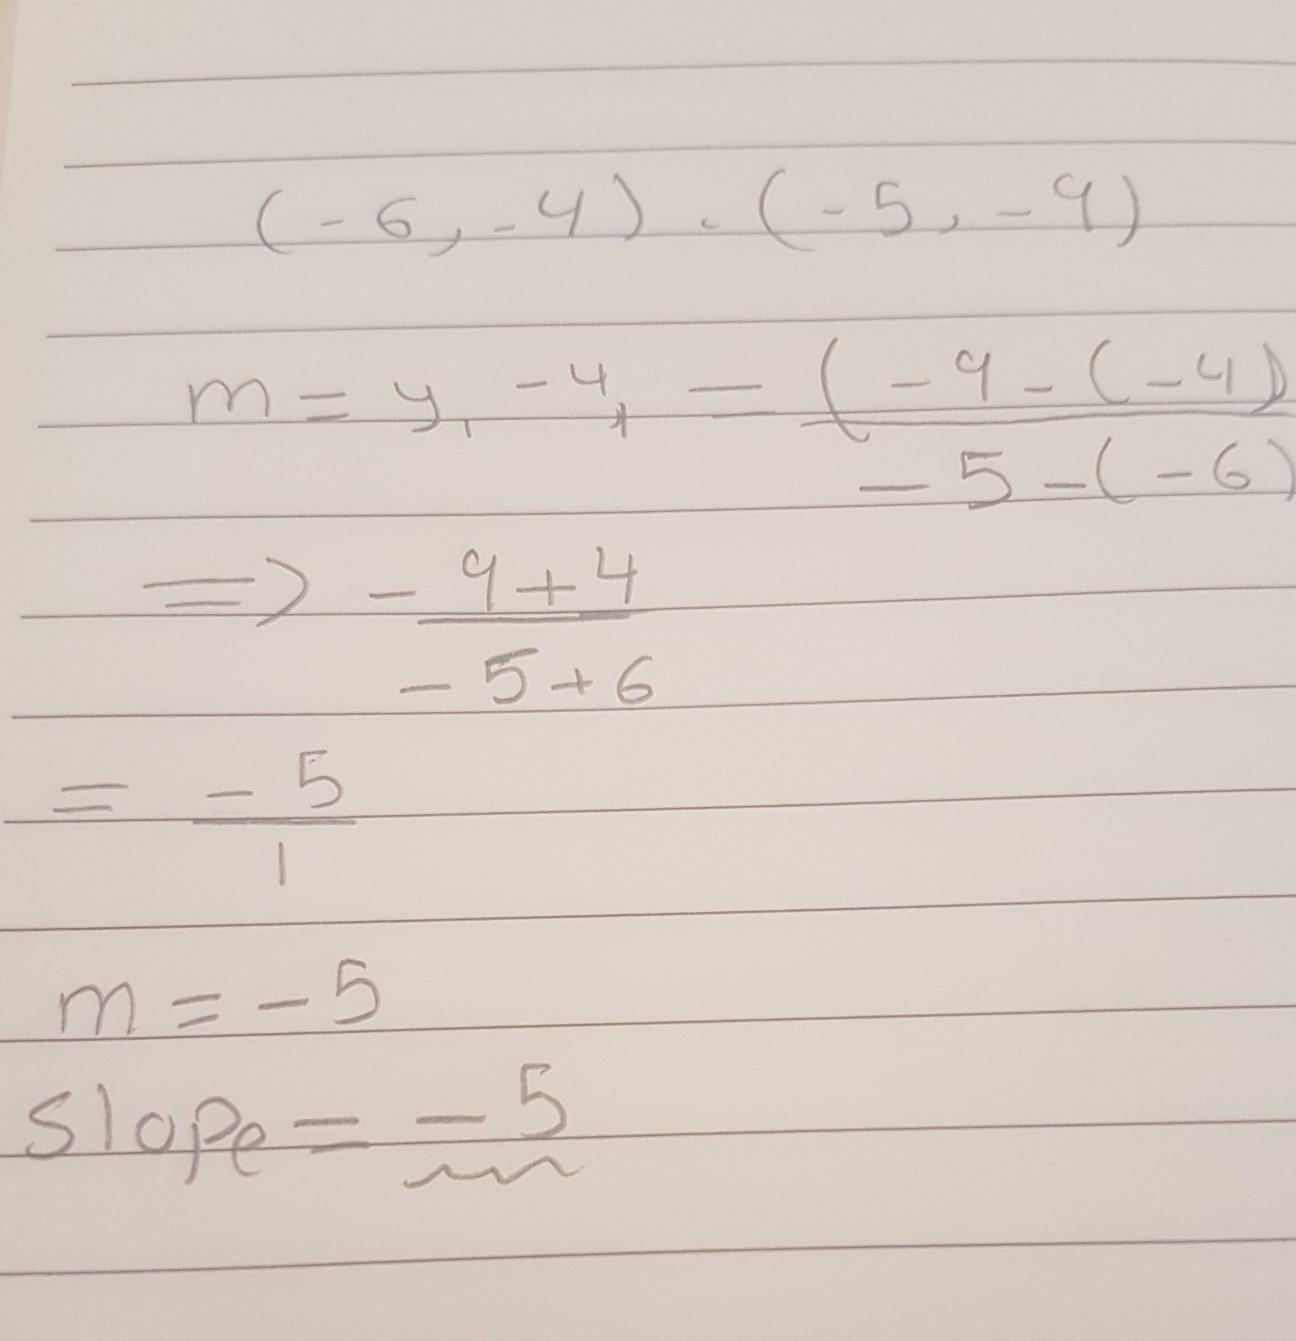 (-6, -4) . (-5, -9)
m = y₁ - y₁ = (-9-(-4)
-5-(-6)
=> -9+4
-5+6
= -5
1
m = -5
slope = -5